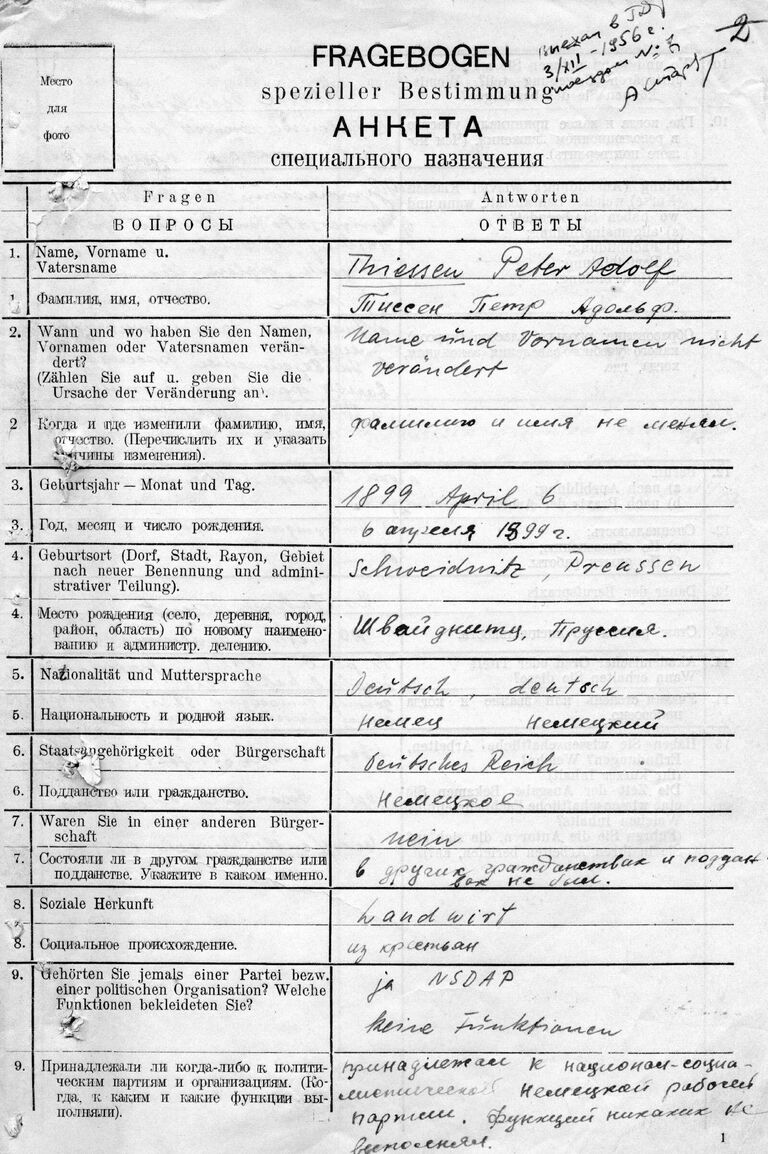 выехал в ГДР
3/XII-1956 г.
поездом №
2
Место
для
фото
FRAGEBOGEN
spezieller Bestimmung
АНКЕТА
специального назначения
Fragen Antworten
ВОПРОСЫ ОТВЕТЫ
1. Name, Vorname u.
Vatersname
Thiessen Peter Adolf
1. Фамилия, имя, отчество. Тиссен Петр Адольф.
2. Wann und wo haben Sie den Namen,
Vornamen oder Vatersnamen verän-
dert?
(Zählen Sie auf u. geben Sie die
Ursache der Veränderung an).
Name und Vornamen nicht
verändert
2 Когда и где изменили фамилию, имя,
отчество. (Перечислить их и указать
причины изменения).
фамилию и имя не менял.
3. Geburtsjahr — Monat und Tag. 1899 April 6
3. Год, месяц и число рождения. 6 апреля 1899 г.
4. Geburtsort (Dorf, Stadt, Rayon, Gebiet
nach neuer Benennung und admini-
strativer Teilung).
Schweidnitz, Preussen
4. Место рождения (село, деревня, город,
район, область) по новому наимено-
ванию и администр. делению.
Швайднитц, Пруссия.
5. Nationalität und Muttersprache Deutsch, deutsch
5. Национальность и родной язык. немец немецкий
6. Staatsangehörigkeit oder Bürgerschaft Deutsches Reich
6. Подданство или гражданство. немецкое
7. Waren Sie in einer anderen Bürger-
schaft
nein
7. Состояли ли в другом гражданстве или
подданстве. Укажите в каком именно.
в других гражданствах и поддан-
вах не был.
8. Soziale Herkunft Landwirt
8. Социальное происхождение. из крестьян
9. Gehörten Sie jemals einer Partei bezw.
einer politischen Organisation? Welche
Funktionen bekleideten Sie?
ja NSDAP
keine Funktionen
9. Принадлежали ли когда-либо к полити-
ческим партиям и организациям. (Ко-
гда, к каким и какие функции вы-
полняли).
принадлежал к национал-социа-
листической немецкой рабочей
партии. Функций никаких не
выполнял.
1